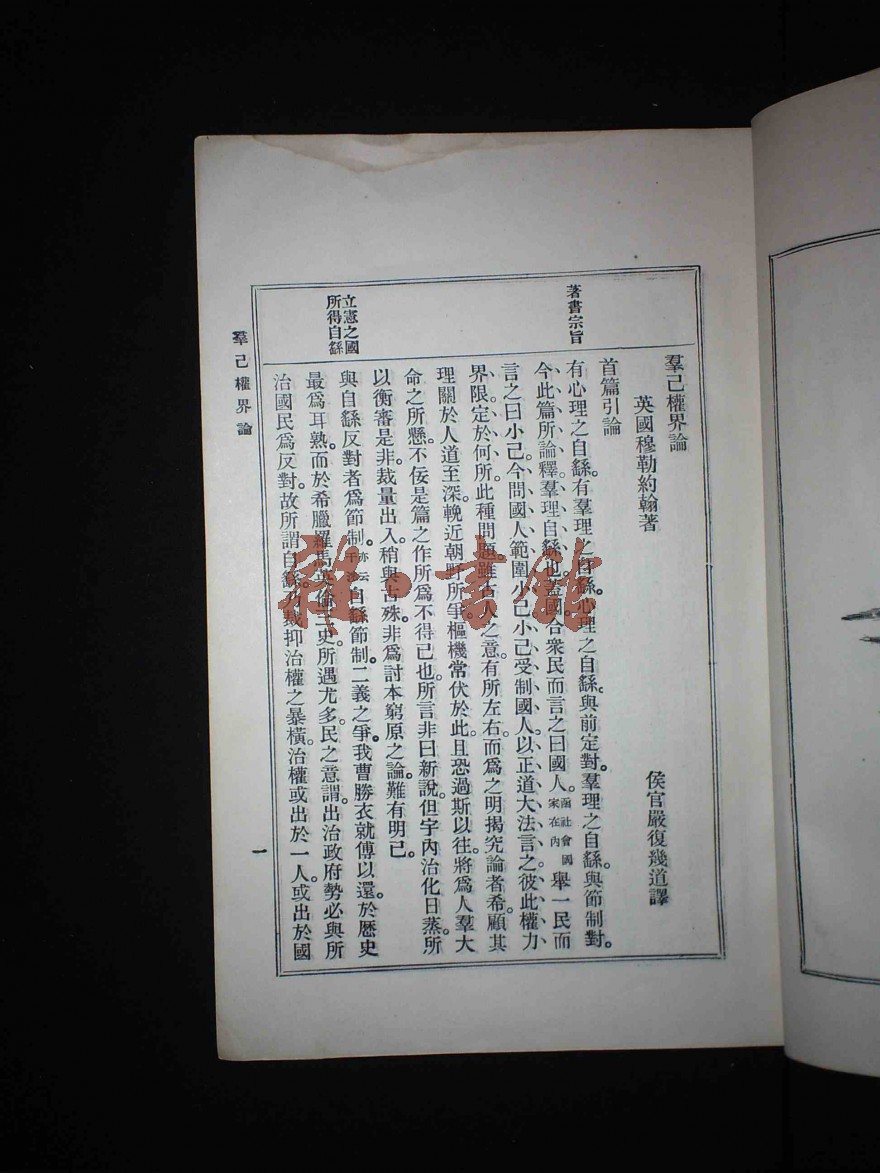 著書宗旨
立憲之國
所得自繇
羣己權界論
英國穆勒約翰著
侯官嚴復幾道譯
首篇引論
有心理之自繇。有羣理之自繇。心理之自繇。與前定對。羣理之自繇。與節制對。
今此篇所論釋。羣理自繇也。蓋國合衆民而言之曰國人。函社會國家在內舉一民而
言之曰小己。今問國人範圍小己。小己受制國人。以正道大法言之。彼此權力
界限。定於何所。此種問題。雖古人之意有所左右。而爲之明揭究論者希。顧其
理關於人道至深。輓近朝野所爭。樞機常伏於此。且恐過斯以往。將爲人羣大
命之所懸。不佞是篇之作。所爲不得已也。所言非曰新說。但宇內治化日蒸。所
以衡審是非。裁量出入。稍與古殊。非爲討本窮原之論。難有明已。
與自繇反對者爲節制。亦云干涉自繇節制。二義之爭。我曹勝衣就傅以還。於歷史
最爲耳熟。而於希臘羅馬英倫三史。所遇尤多。民之意謂出治政府。勢必與所
治國民爲反對。故所謂自繇。乃裁抑治權之暴橫。治權或出於一人。或出於國
羣己權界論
一
雜·書館